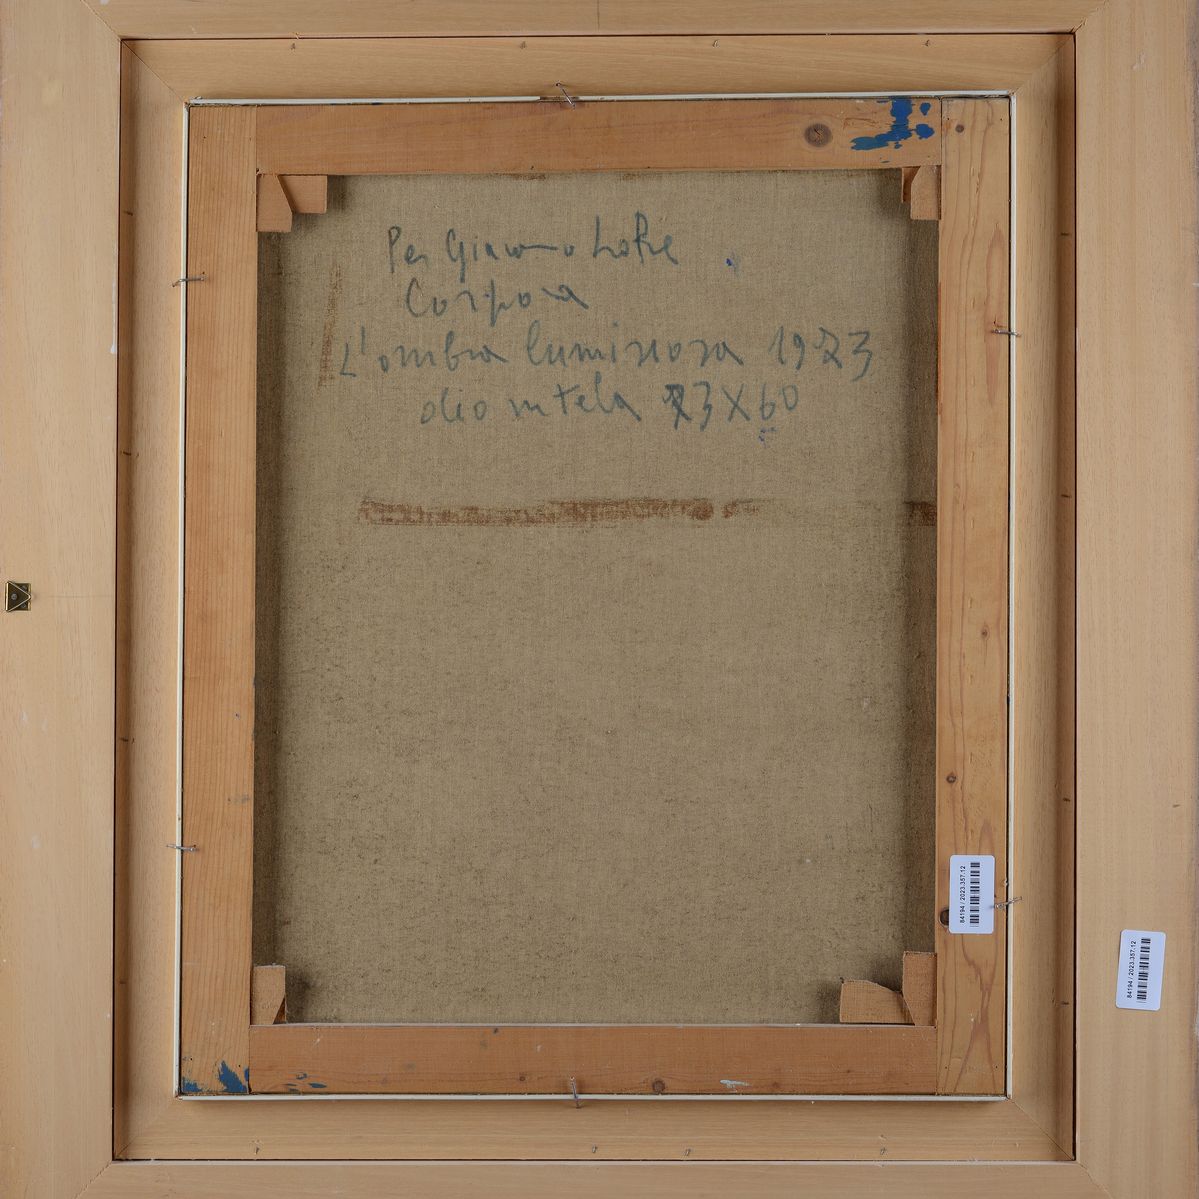 Per Giacomo LoRe
Corpora
L'ombra luminosa 1973
olio su tela 73X60
84194 / 2023.357.12
84194 / 2023.357.12